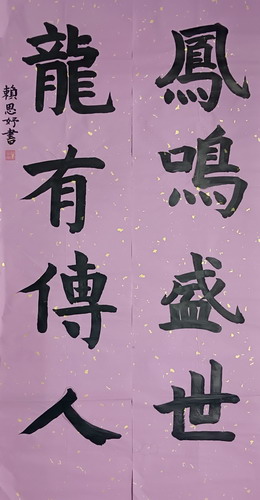 鳳鳴盛世
龍有傳人
賴思妤書